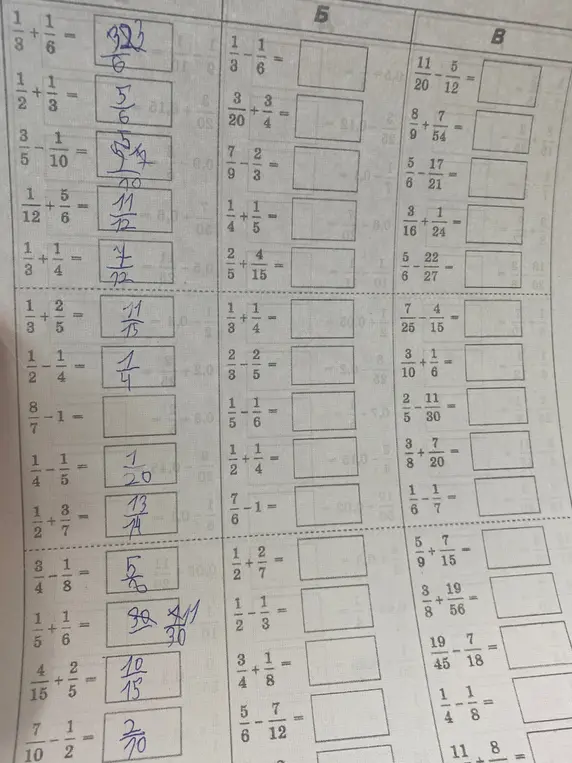 Б
В
1/3 + 1/6 = /6
1/2 + 1/3 = 5/6
3/5 - 1/10 = /10
1/12 + 5/6 = 11/12
1/3 + 1/4 = 7/12
1/3 + 2/5 = 11/15
1/2 - 1/4 = 1/4
8/7 - 1 =
1/4 - 1/5 = 1/20
1/2 + 3/7 = 13/14
3/4 - 1/8 = 5/
1/5 + 1/6 = 11/30
4/15 + 2/5 = 10/15
7/10 - 1/2 = 2/10
1/3 - 1/6 =
3/20 + 3/4 =
7/9 - 2/3 =
1/4 + 1/5 =
2/5 + 4/15 =
1/3 + 1/4 =
2/3 - 2/5 =
1/5 - 1/6 =
1/2 + 1/4 =
7/6 - 1 =
1/2 + 2/7 =
1/2 - 1/3 =
3/4 + 1/8 =
5/6 - 7/12 =
11/20 - 5/12 =
8/9 + 7/54 =
5/6 - 17/21 =
3/16 + 1/24 =
5/6 - 22/27 =
7/25 - 4/15 =
3/10 + 1/6 =
2/5 - 11/30 =
3/8 + 7/20 =
1/6 - 1/7 =
5/9 + 7/15 =
3/8 + 19/56 =
19/45 - 7/18 =
1/4 - 1/8 =
11 + 8 =